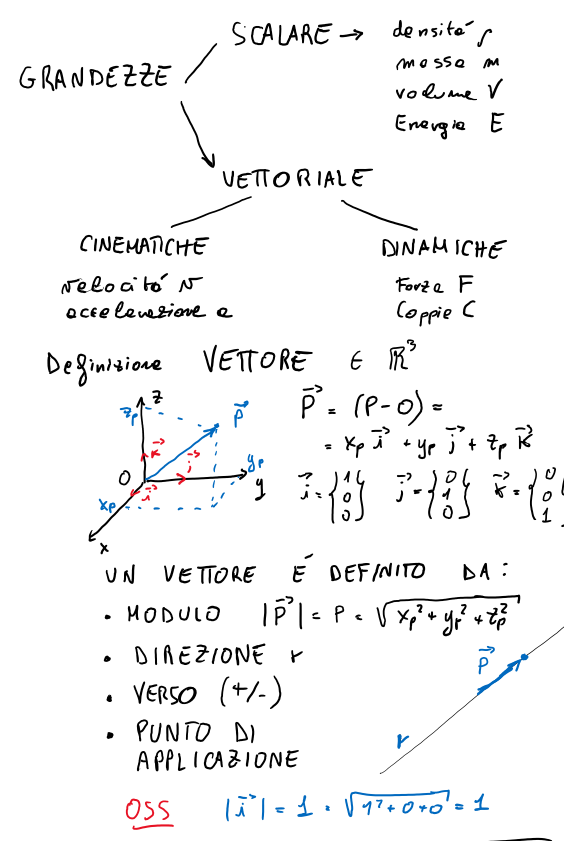 GRANDEZZE
SCALARE → densità ρ
massa m
volume V
Energia E
VETTORIALE
CINEMATICHE
velocità v
accelerazione a
DINAMICHE
Forza F
Coppie C
Definizione VETTORE ∈ ℝ³
z
z_P
P⃗
k⃗
j⃗
y_P
O
y
i⃗
x_P
x
P⃗ = (P-O) =
= x_P i⃗ + y_P j⃗ + z_P k⃗
i⃗ = {1 0 0} j⃗ = {0 1 0} k⃗ = {0 0 1
UN VETTORE É DEFINITO DA:
• MODULO |P⃗| = P = √(x_P² + y_P² + z_P²)
• DIREZIONE r
• VERSO (+/-)
• PUNTO DI
APPLICAZIONE
P⃗
r
OSS |i⃗| = 1 = √(1² + 0 + 0) = 1